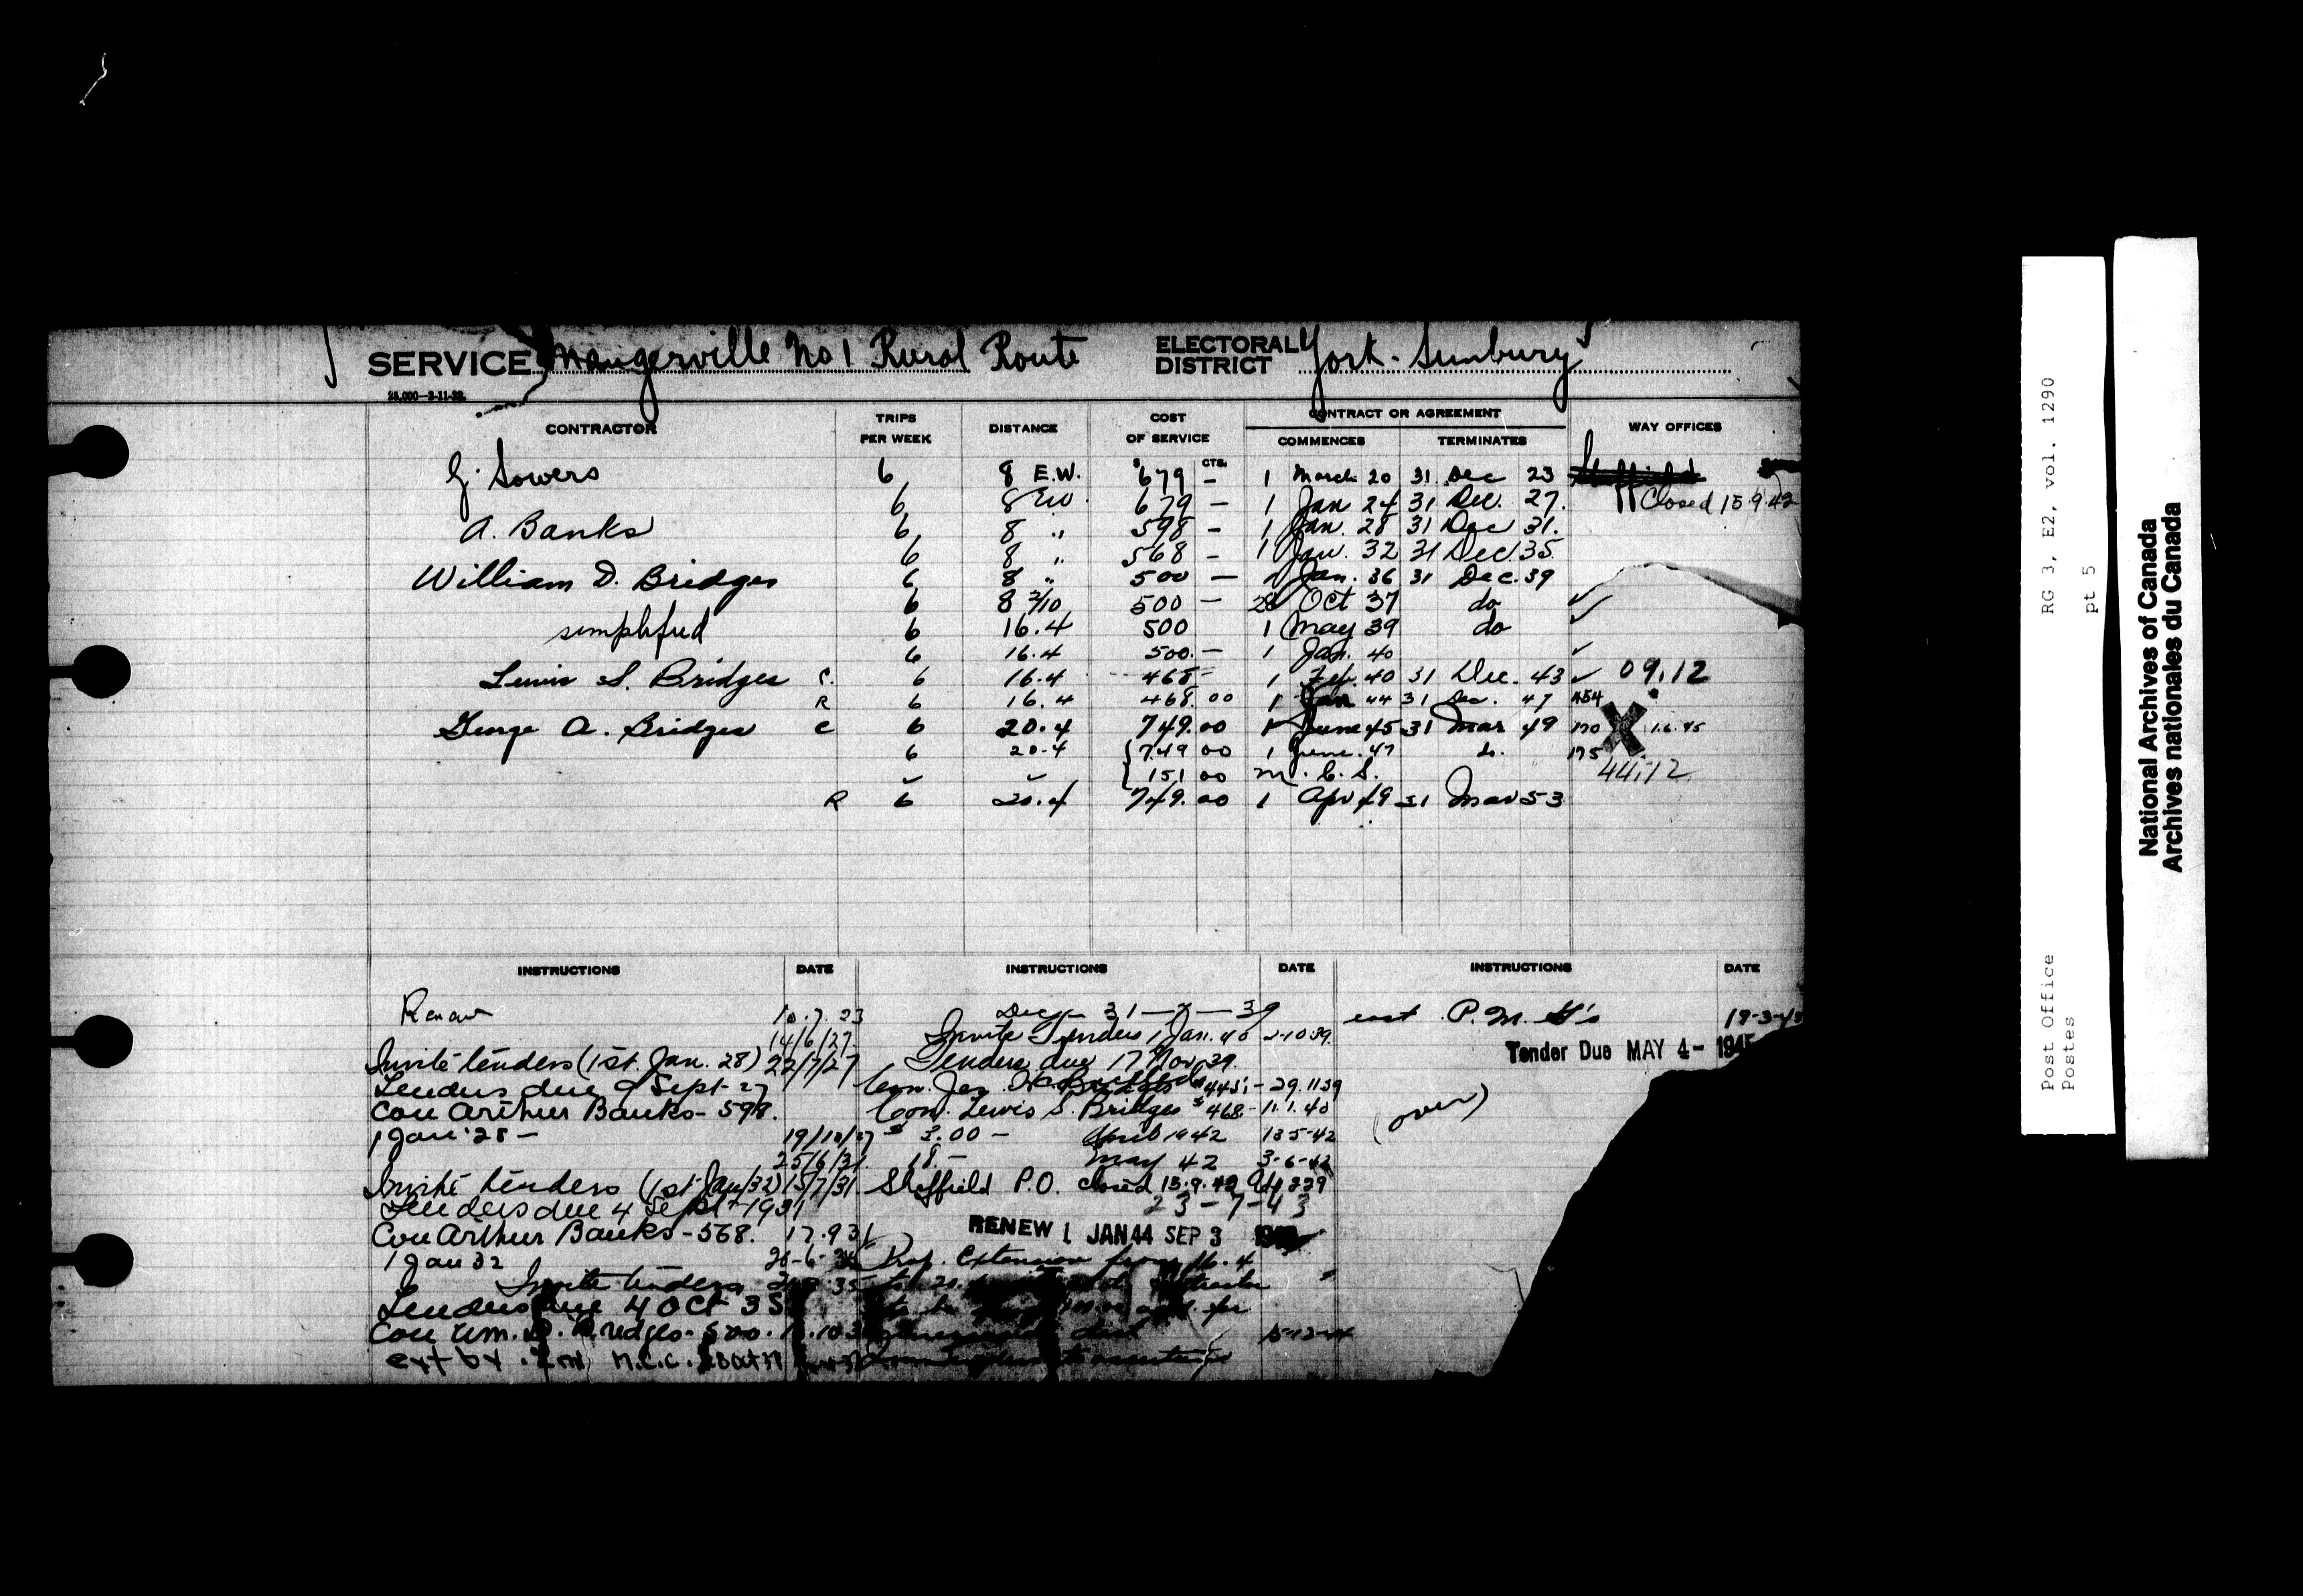 SERVICE Maugerville No 1 Rural Route ELECTORAL DISTRICT York-Sunbury
25,000—3-11-22.
CONTRACTOR TRIPS PER WEEK DISTANCE COST OF SERVICE CONTRACT OR AGREEMENT COMMENCES TERMINATES WAY OFFICES
G. Sowers 6 8 E.W. $679 CTS. — 1 March 20 31 Dec 23 Sheffield
6 8 EW. 679 — 1 Jan 24 31 Dec. 27. Closed 15.9.42
A. Banks 6 8 " 598 — 1 Jan. 28 31 Dec 31.
6 8 " 568 — 1 Jan. 32 31 Dec 35.
William D. Bridges 6 8 " 500 — 1 Jan. 36 31 Dec. 39
6 8 3/10 500 — 28 Oct 37 do ✓
simplified 6 16.4 500 1 May 39 do ✓
6 16.4 500.— 1 Jan. 40 ✓
Lewis S. Bridges C. 6 16.4 468— 1 Feb. 40 31 Dec. 43 ✓ 09.12
R 6 16.4 468.00 1 Jan 44 31 Dec. 47 454
George A. Bridges C 6 20.4 749.00 1 June 45 31 Mar 49 170 X 1.6.45
6 20.4 {749 00 1 June. 47 175
{151 00 M.C.S. 44.12
R 6 20.4 749.00 1 Apr 49 31 Mar 53
INSTRUCTIONS DATE INSTRUCTIONS DATE INSTRUCTIONS DATE
Renew 10.7.23
14/6/27.
Invite tenders (1st. Jan. 28) 22/7/27
Tenders due 9 Sept-27
Con Arthur Banks-598.
1 Jan '28 — 19/10/27
25/6/31.
Invite tenders (1st Jan/32) 15/7/31
Tenders due 4 Sept-1931
Con Arthur Banks-568. 17.9.31
1 Jan 32
Invite tenders
Tenders due 4 Oct 35
Con Wm. D. Bridges-500.
ext by M.C.C. 28 Oct 37
Dec 31—7—39
Invite Tenders 1 Jan. 40 2-10 39.
Tenders due 17 Nov 39.
Con. Jas. 29.11 39
Con. Lewis S. Bridges $468- 11.1.40
$3.00 — April 1942 13 5-42
18.— May 42 3-6-42
Sheffield P.O. closed 15.9.42
23-7-43
RENEW 1 JAN 44 SEP 3
Prop. Extension from 16.4
to 20.
P.M.G's
Tender Due MAY 4- 1945
(over)
Post Office RG 3, E2, vol. 1290
Postes pt 5
National Archives of Canada
Archives nationales du Canada